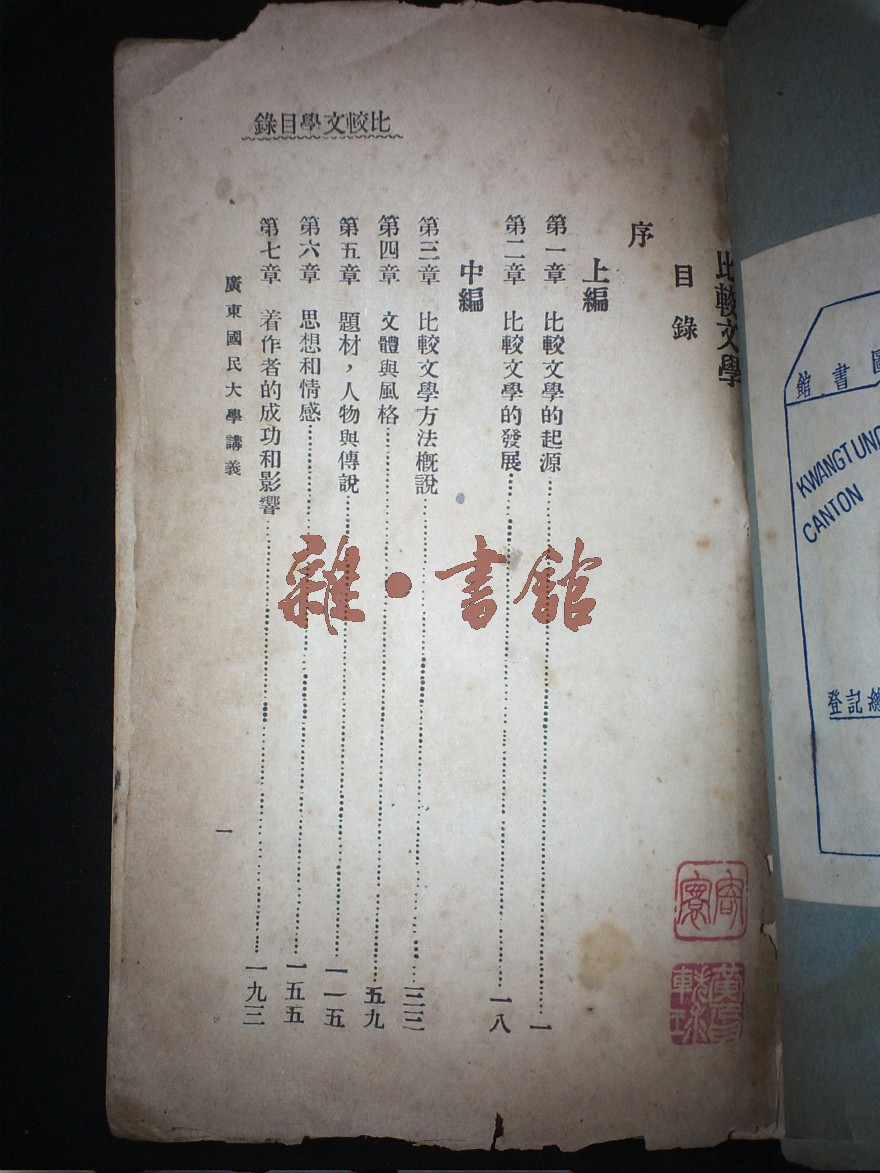 比較文學目錄
比較文學
目錄
序
上編
第一章 比較文學的起源 一
第二章 比較文學的發展 一八
中編
第三章 比較文學方法概說 三三
第四章 文體與風格 五九
第五章 題材，人物與傳說 一一五
第六章 思想和情感 一五五
第七章 着作者的成功和影響 一九三
廣東國民大學講義
一
雜·書館
圖書館
KWANGTUNG
CANTON
登記總